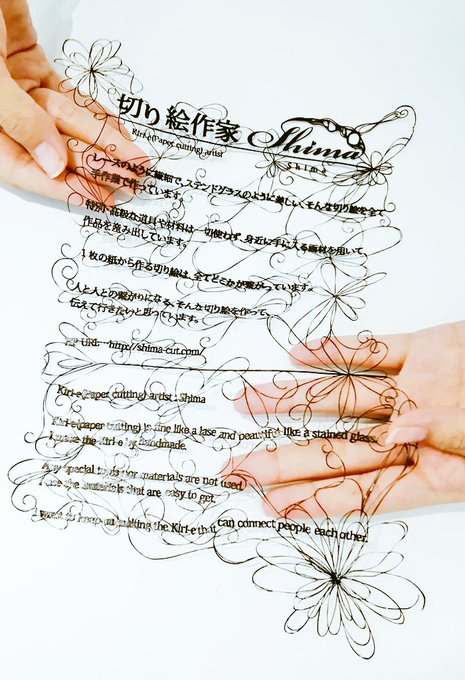 切り絵作家 Shima
Kiri-e(Paper cutting) artist
Shima
レースのように繊細で、ステンドグラスのように美しい、そんな切り絵を全て
手作業で作っています。
特別、高級な道具や材料は一切使わず、身近に手に入る画材を用いて、
作品を産み出しています。
1枚の紙から作る切り絵は、全てどこかが繋がっています。
人と人との繋がりになる、そんな切り絵を作って、
伝えて行きたいと思っています。
URL…http://shima-cut.com/
Kiri-e(Paper cutting) artist : Shima
Kiri-e(paper cutting) is fine like a lase and beautiful like a stained glass.
I make the Kiri-e by handmade.
Any special tools or materials are not used.
I use the materials that are easy to get.
I want to keep on making the Kiri-e that can connect people each other.